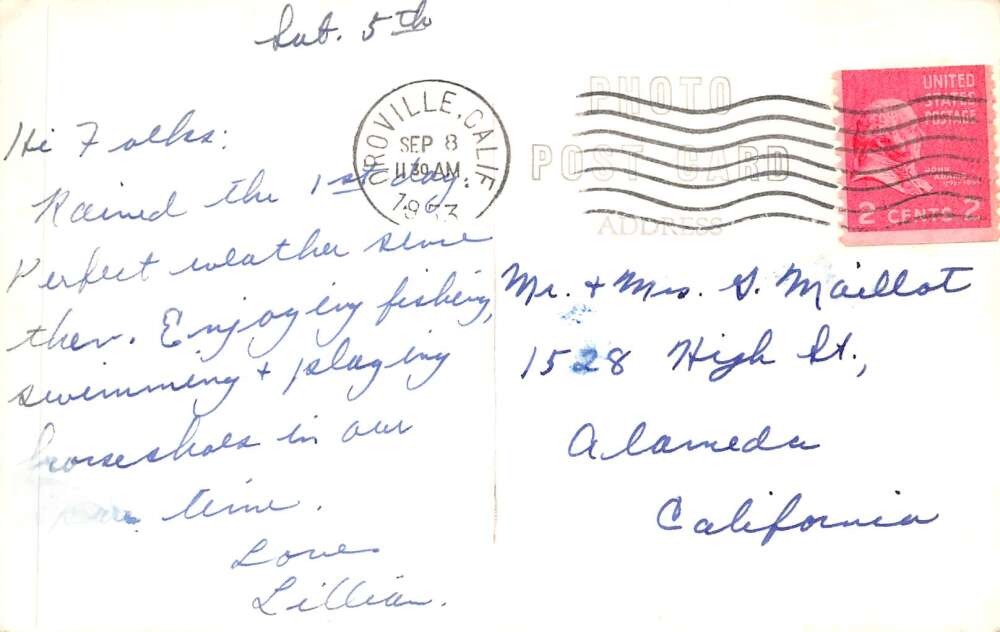 Sat. 5th
Hi Folks:
Rained the 1st day.
Perfect weather since
then. Enjoying fishing,
swimming + playing
horseshoes in our
time.
Love
Lillian.
OROVILLE, CALIF
SEP 8
11 30 AM
1953
PHOTO
POST CARD
ADDRESS
UNITED
STATES
POSTAGE
JOHN
ADAMS
2 CENTS 2
Mr. + Mrs. S. Maillot
1528 High St.,
Alameda
California